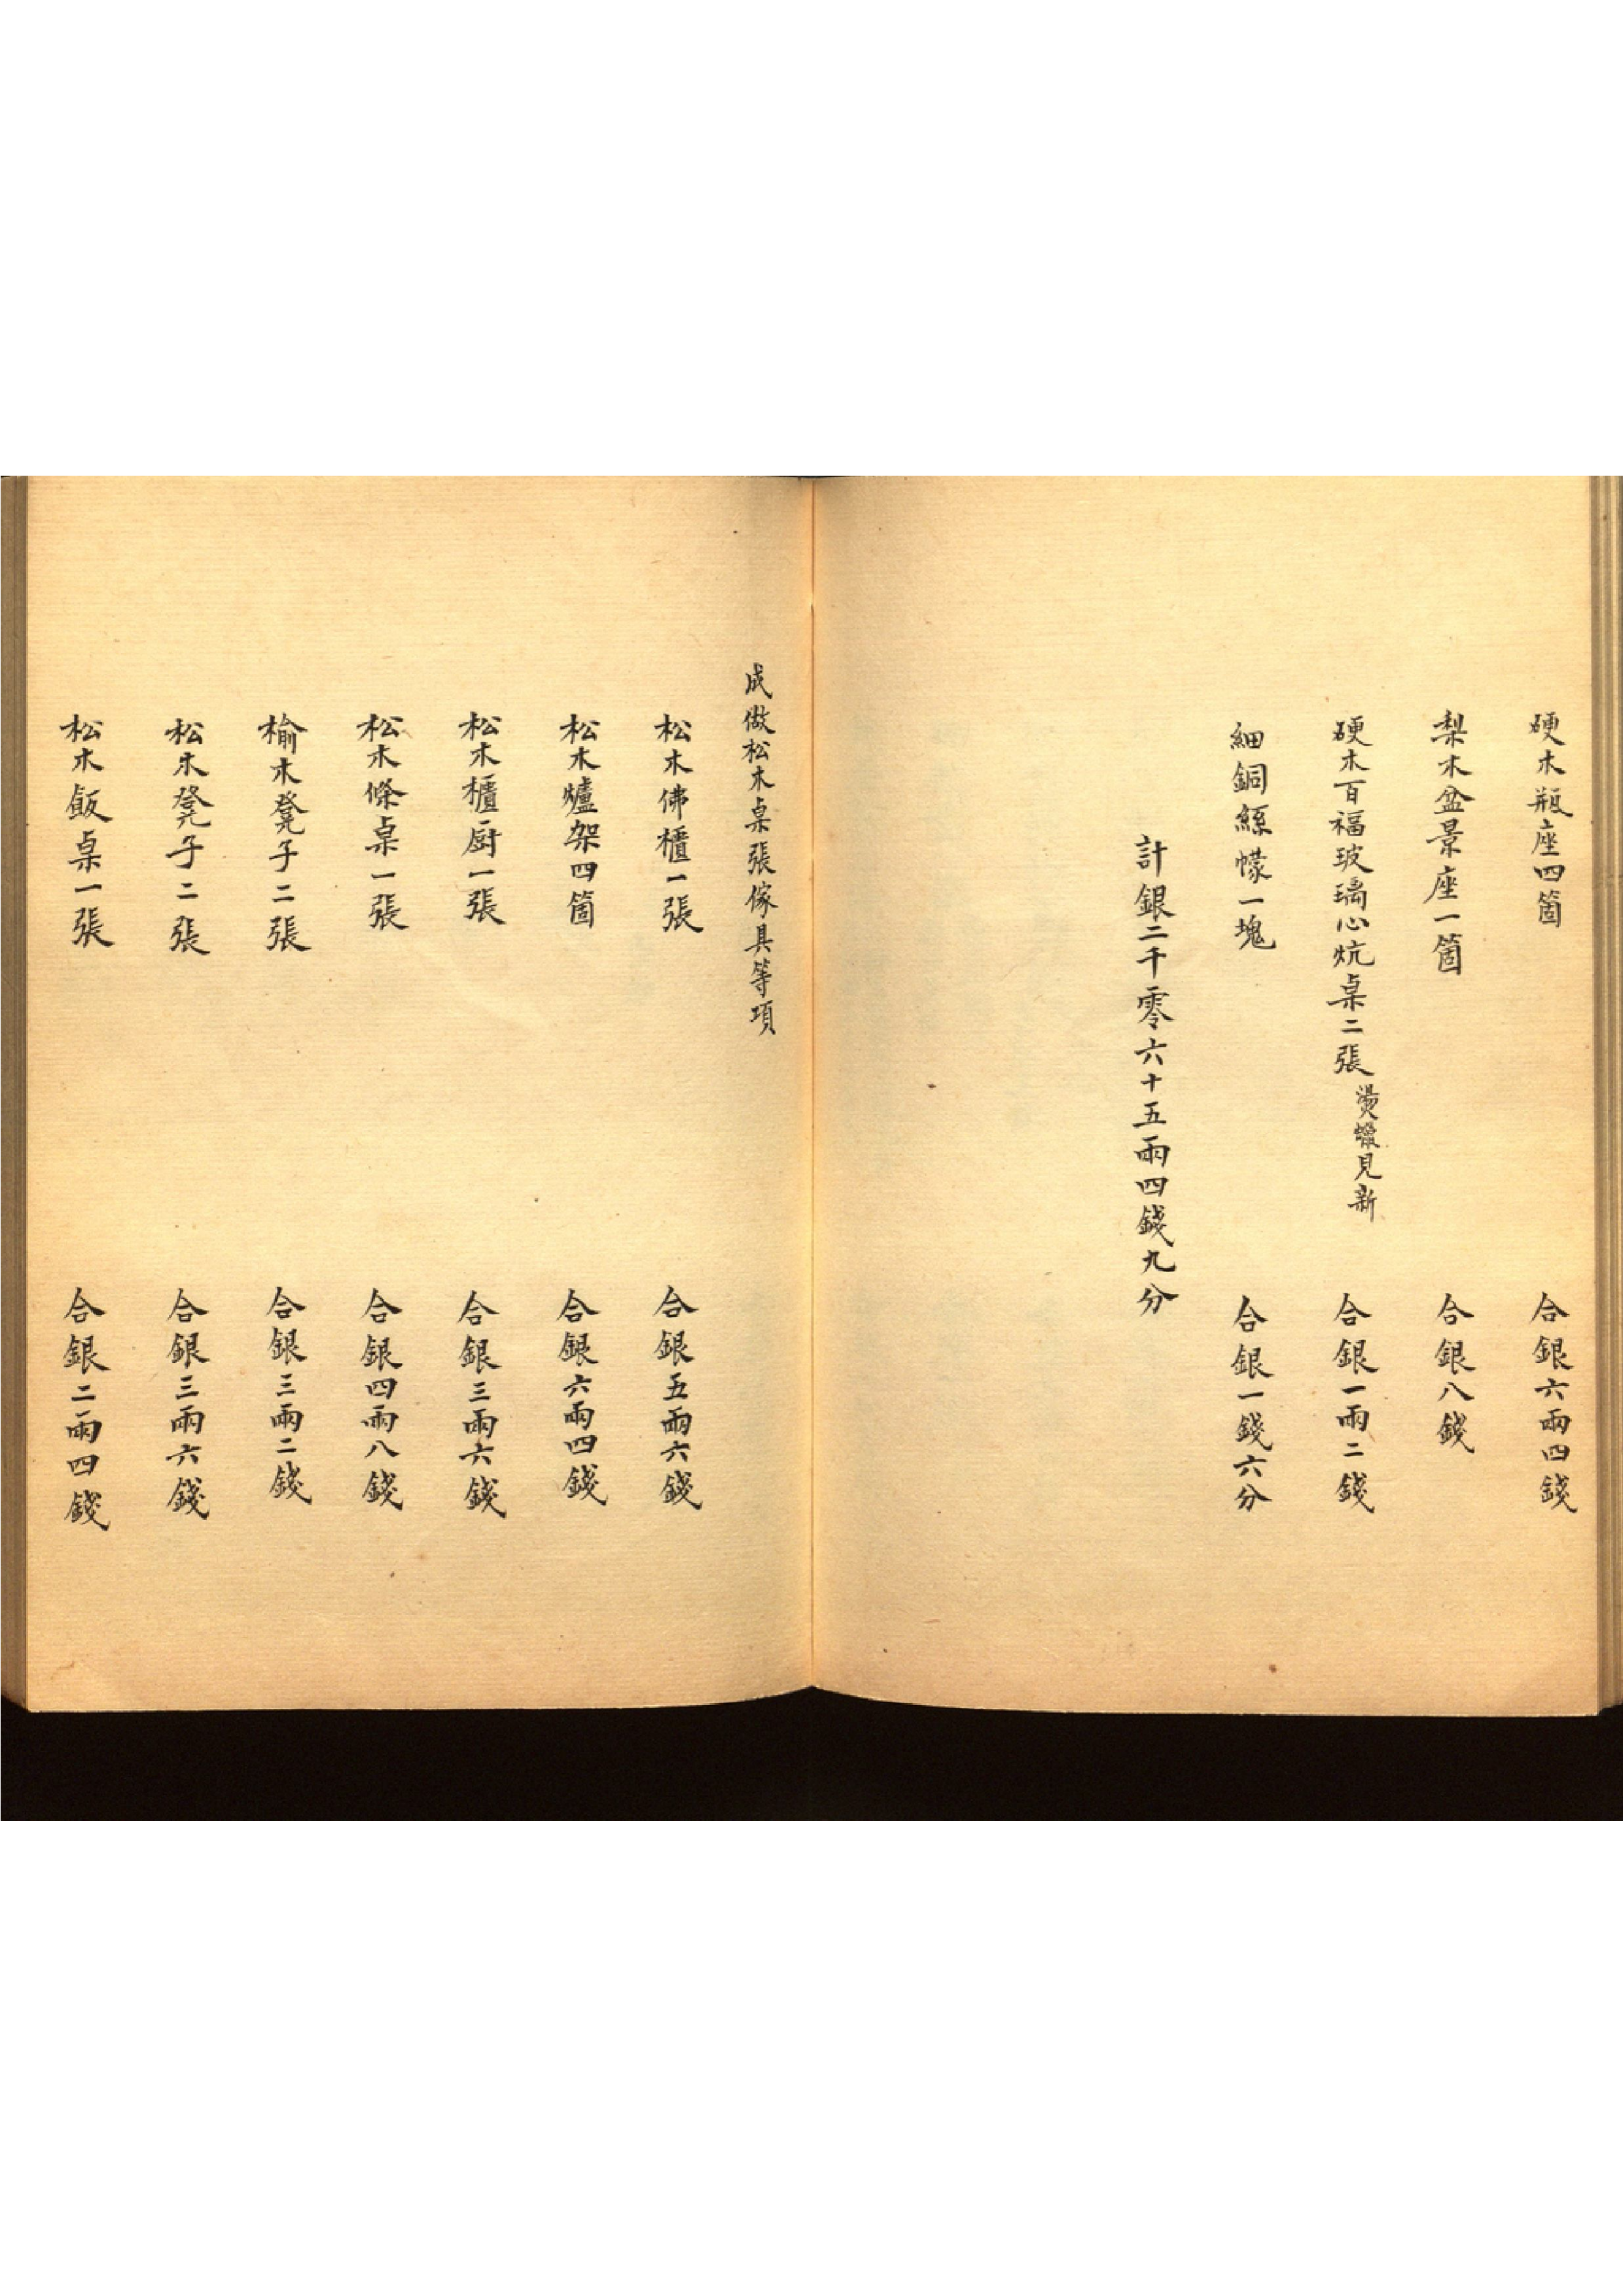 硬木瓶座四箇 合銀六兩四錢
梨木盆景座一箇 合銀八錢
硬木百福玻璃心炕桌二張燙蠟見新 合銀一兩二錢
細銅絲幪一塊 合銀一錢六分
計銀二千零六十五兩四錢九分
成做松木桌張傢具等項
松木佛櫃一張 合銀五兩六錢
松木爐架四箇 合銀六兩四錢
松木櫃厨一張 合銀三兩六錢
松木條桌一張 合銀四兩八錢
榆木凳子二張 合銀三兩二錢
松木凳子二張 合銀三兩六錢
松木飯桌一張 合銀二兩四錢